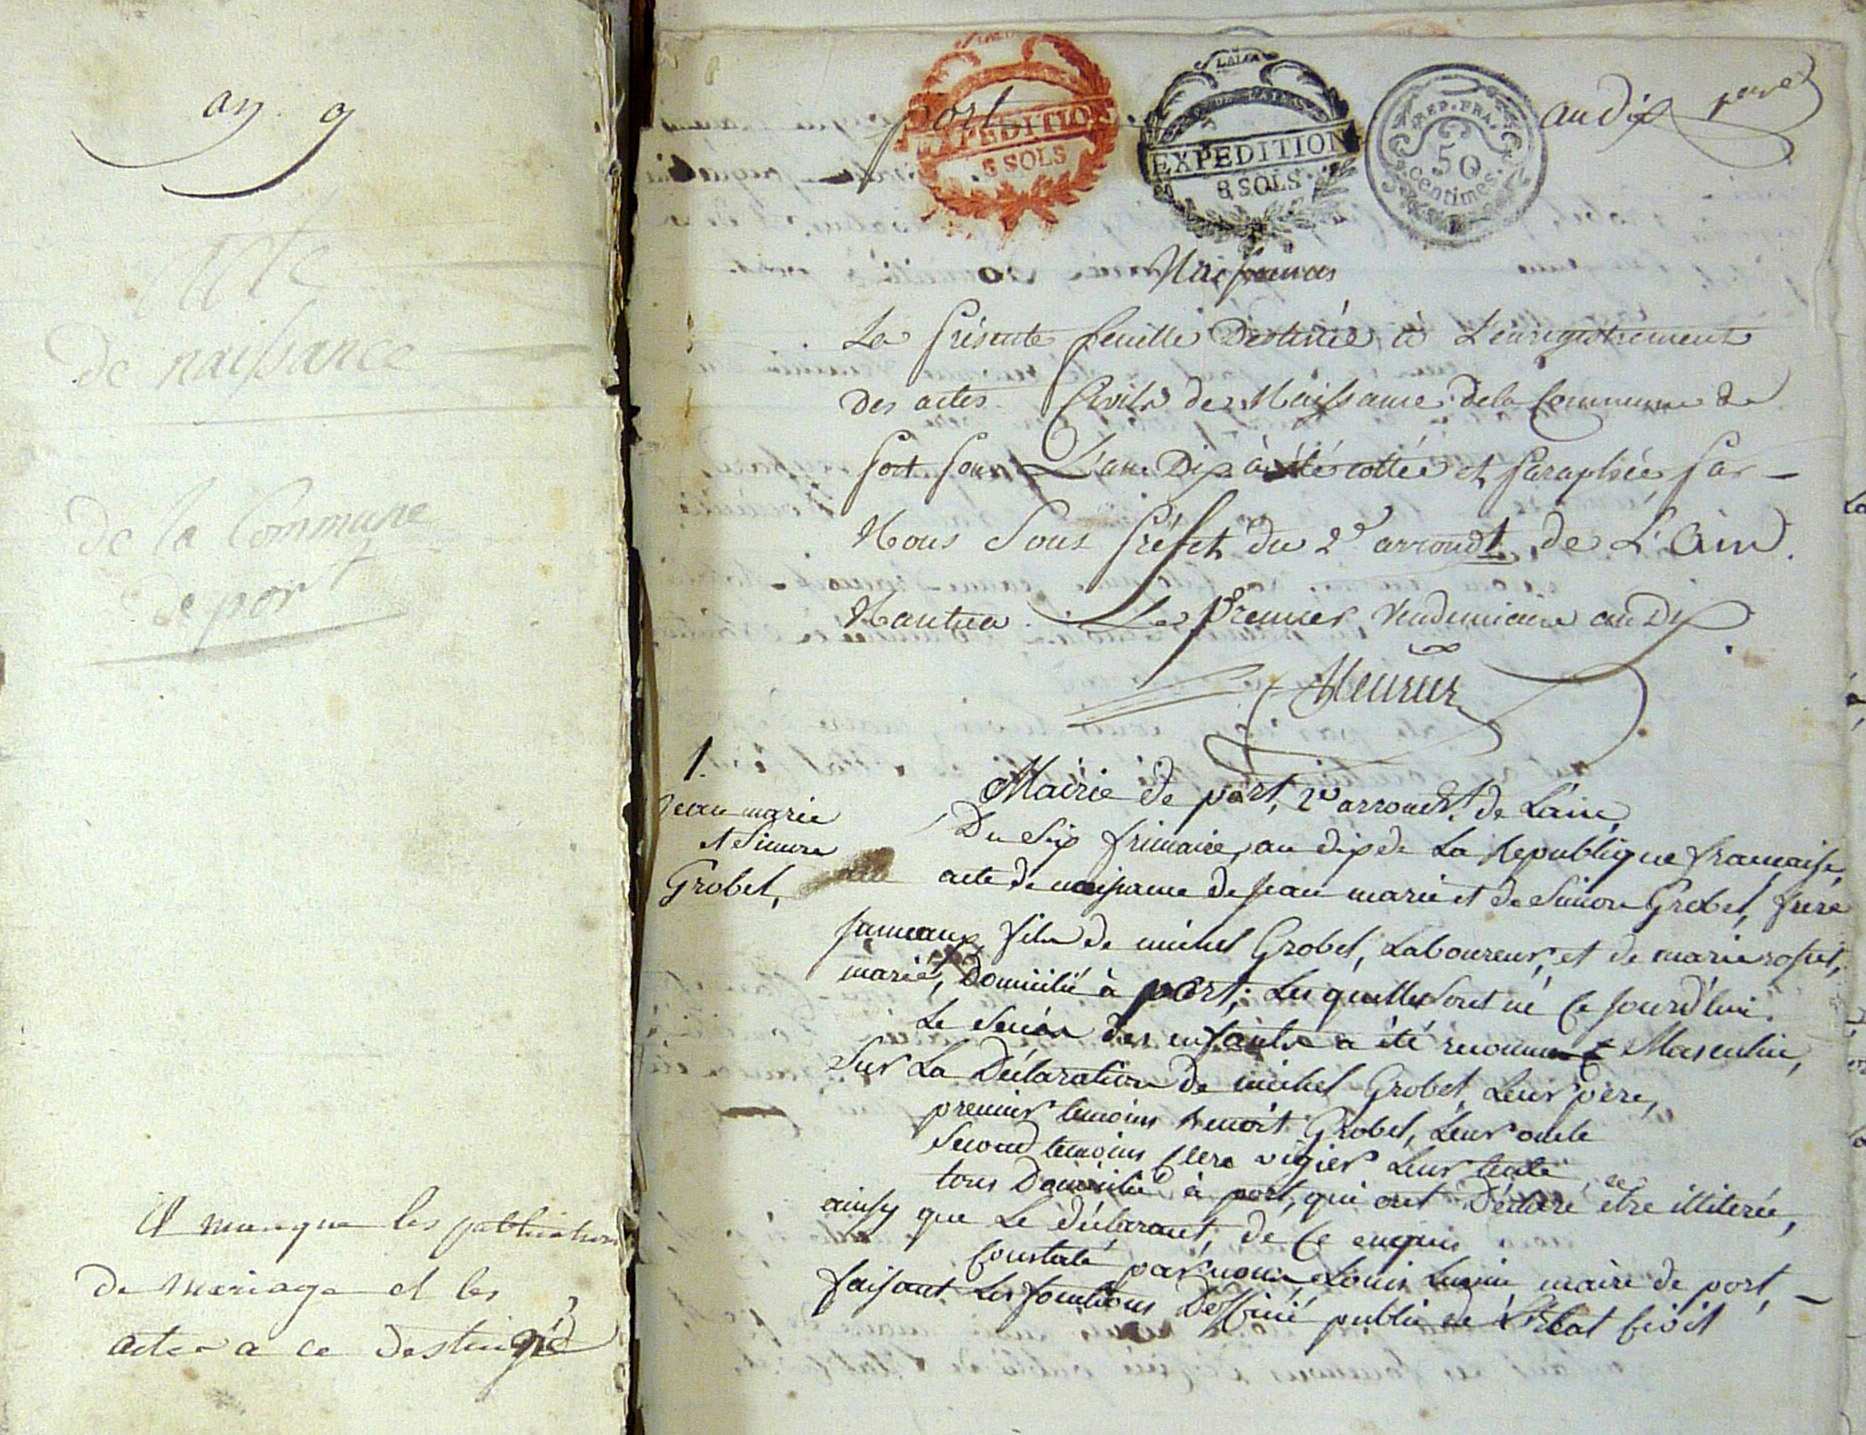 an 9
Acte
de naissance
de la Commune
de port
Il manque les publications
de mariage et les
actes a ce destiné
port
EXPEDITION
8 SOLS
EXPEDITION
8 SOLS
REP. FRA.
50
Centimes.
an dix
Naissances
La présente feuille Destinée à L'enregistrement
Des actes Civils de Naissance de la Commune de
Port pour L'an Dix à été cottée et paraphée par
Nous Sous Préfet du 2e arrondt de L'Ain.
Nantua Le premier vendemiaire an Dix
1.
Jean marie
et Simon
Grobet,
Mairie de port, 2e arrondt. de Lain,
Du Six frimaire, an dix de La Republique francaise,
acte de naissance de Jean marie et de Simon Grobet, frere
jumeaux, fils de michel Grobet, Laboureur, et de marie rosset,
marié, Domicilié à port, Lesquelles sont né Ce jourd'hui.
Le Sexe des enfants a été reconnu Masculin,
Sur La Déclaration de michel Grobet, Leur père,
premier temoins benoit Grobet, Leur oncle
Second temoins Clere vigier Leur tente
tous Domicilié à port, qui ont Déclaré être illiterée,
ainsy que Le déclarant, de Ce enquis
Constaté par nous, Louis maire de port,
faisant Les fonctions D'officié public de L'Etat Civil